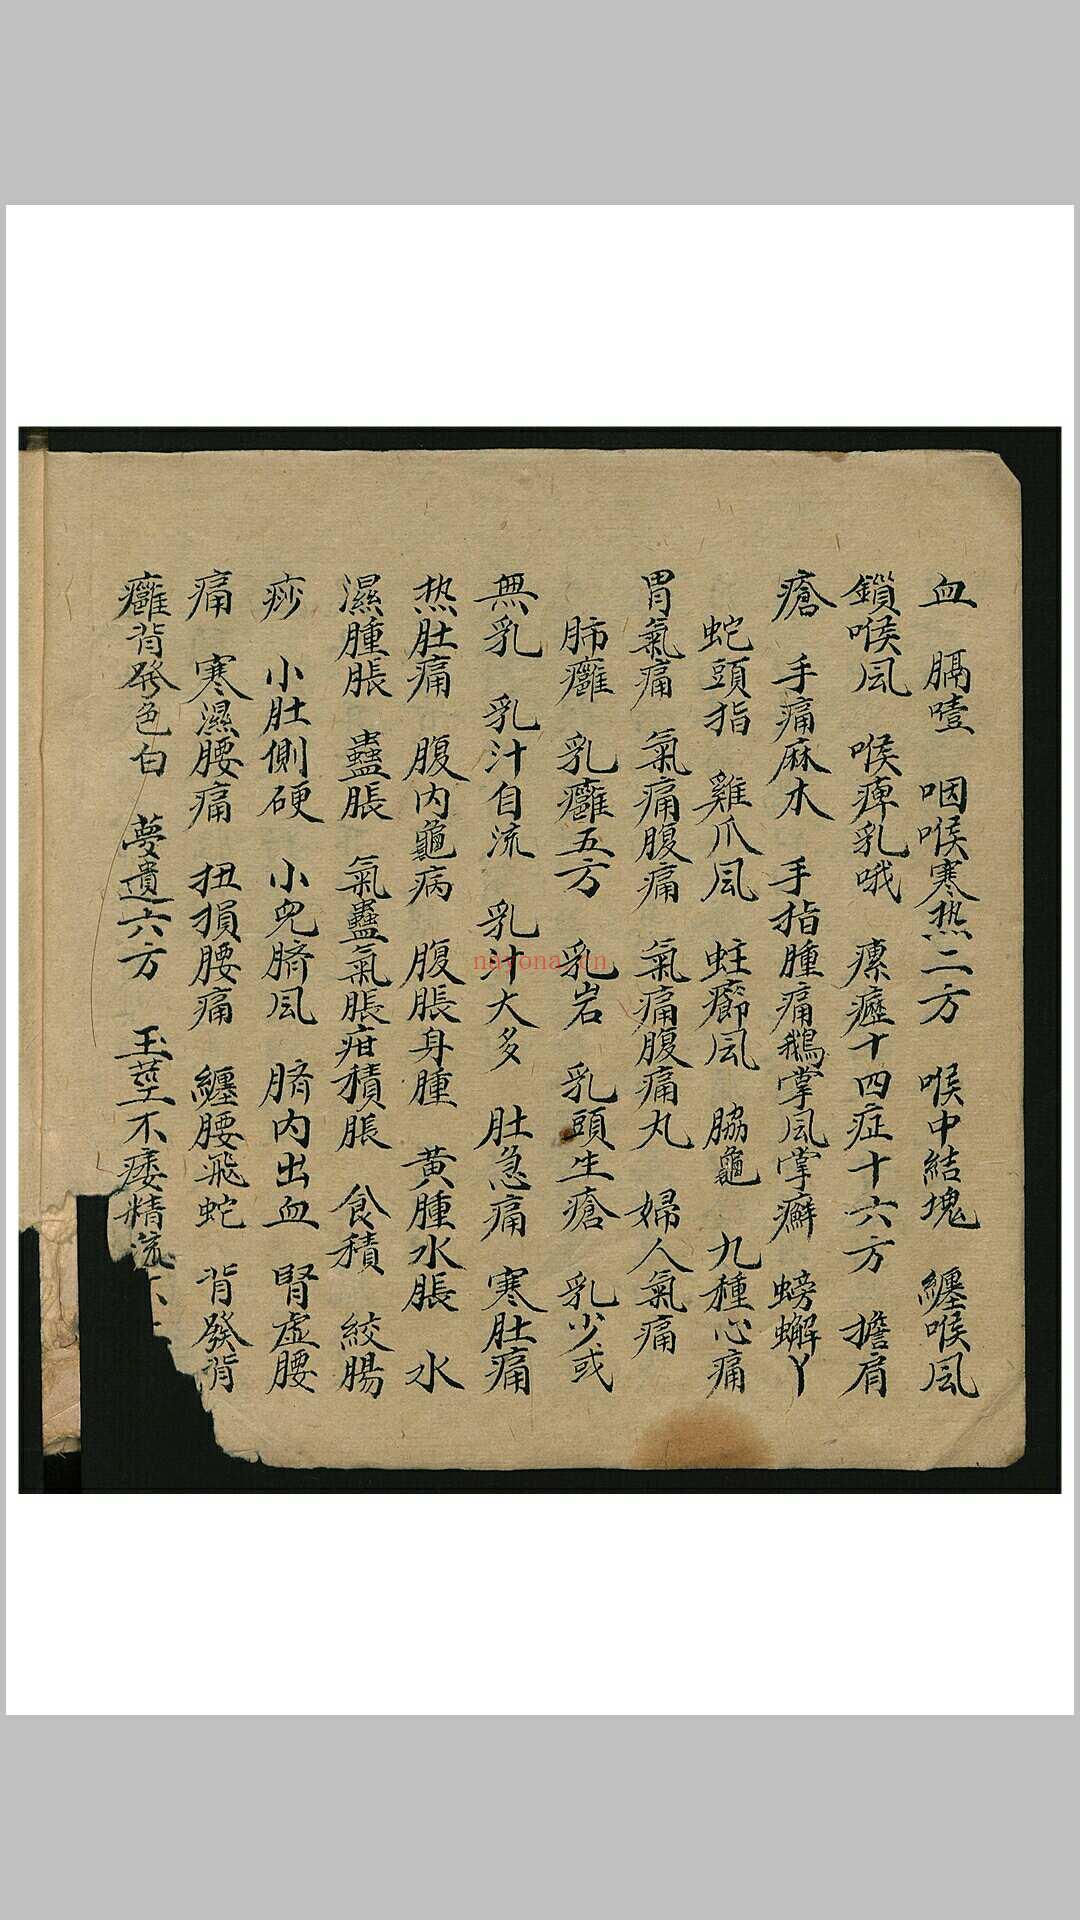 血　膈噎　咽喉寒热二方　喉中結塊　纏喉風
鎖喉風　喉痺乳哦　瘰癧十四症十六方　擔肩
瘡　手痛麻木　手指腫痛鵝掌風掌癬　螃蠏丫
蛇頭指　雞爪風　蛀癤風　脇龜　九種心痛
胃氣痛　氣痛腹痛　氣痛腹痛丸　婦人氣痛
肺癰　乳癰五方　乳岩　乳頭生瘡　乳少或
無乳　乳汁自流　乳汁大多　肚急痛　寒肚痛
热肚痛　腹内龜病　腹脹身腫　黄腫水脹　水
濕腫脹　蠱脹　氣蠱氣脹疳積脹　食積　絞腸
痧　小肚側硬　小兒臍風　臍内出血　腎虛腰
痛　寒濕腰痛　扭損腰痛　纏腰飛蛇　背發背
癰背發色白　夢遺六方　玉莖不痿精流
nayona.cn